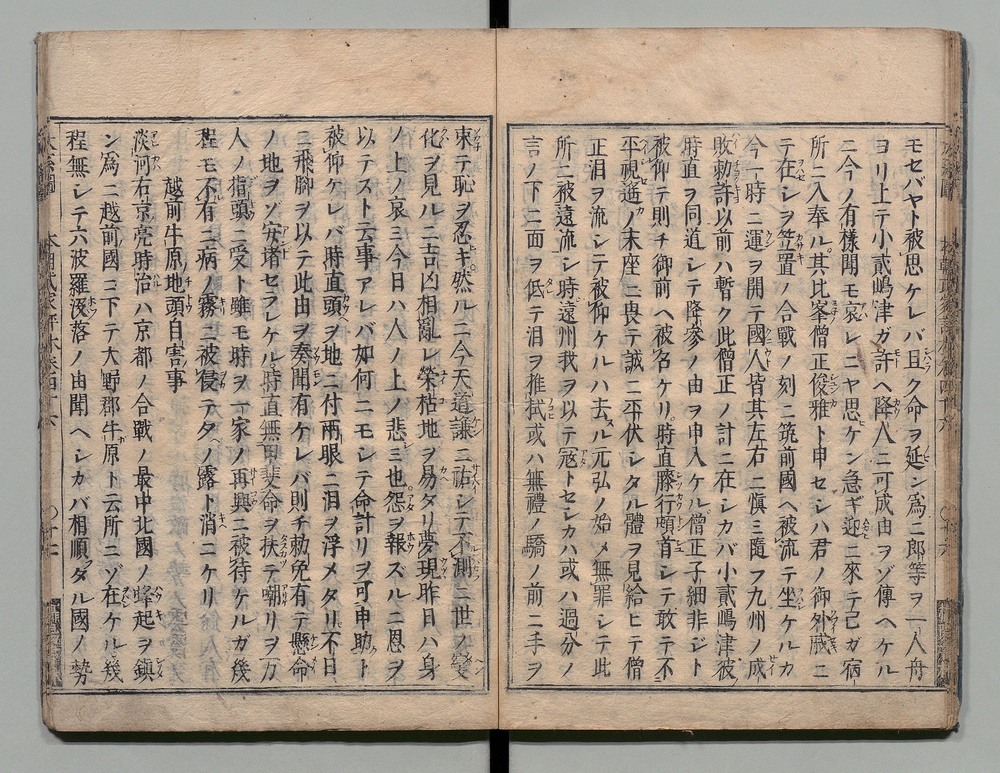 モセバヤト被思ケレバ且ク命ヲ延ン為ニ郎等ヲ一人舟
ヨリ上テ小貳嶋津ガ許ヘ降人ニ可成由ヲゾ傳ヘケル
ニ今ノ有樣聞モ哀レニヤ思ヒケン急ギ迎ニ來テ己ガ宿
所ニ入奉ル其比峯僧正俊雅ト申セシハ君ノ御外戚ニ
テ在シヲ笠置ノ合戰ノ刻ニ筑前國ヘ被流テ坐ケルカ
今一時ニ運ヲ開テ國人皆其左右ニ愼ミ隨フ九州ノ成
敗勅許以前ハ暫ク此僧正ノ計ニ在シカバ小貳嶋津彼
時直ヲ同道シテ降參ノ由ヲ申入ケル僧正子細非ジト
被仰テ則チ御前ヘ被名ケリ時直膝行頓首シテ敢テ不
平視遙ノ末座ニ畏テ誠ニ平伏シタル體ヲ見給ヒテ僧
正泪ヲ流シテ被仰ケルハ去ル元弘ノ始メ無罪シテ此
所ニ被遠流シ時遠州我ヲ以テ冦トセシカハ或ハ過分ノ
言ノ下ニ面ヲ低テ泪ヲ推拭或ハ無禮ノ驕ノ前ニ手ヲ
束テ恥ヲ忍キ然ルニ今天道謙ニ祐シテ不測ニ世ノ變
化ヲ見ルニ吉凶相亂レ榮枯地ヲ易タリ夢現昨日ハ身
ノ上ノ哀ミ今日ハ人ノ上ノ悲ミ也怨ヲ報ズルニ恩ヲ
以テスト云事アレバ如何ニモシテ命計リヲ可申助ト
被仰ケレバ時直頭ヲ地ニ付兩眼ニ泪ヲ浮メタリ不日
ニ飛脚ヲ以テ此由ヲ奏聞有ケレバ則チ勅免有テ懸命
ノ地ヲゾ安堵セラレケル時直無甲斐命ヲ扶テ嘲リヲ万
人ノ指頭ニ受ト雖モ時ヲ一家ノ再興ニ被待ケルガ幾
程モ不有ニ病ノ霧ニ被侵テ夕ノ露ト消ニケリ
越前牛原地頭自害事
淡河右京亮時治ハ京都ノ合戰ノ最中北國ノ蜂起ヲ鎭
ン為ニ越前國ニ下テ大野郡牛原ト云所ニゾ在ケル幾
程無シテ六波羅沒落ノ由聞ヘシカバ相順タル國ノ勢